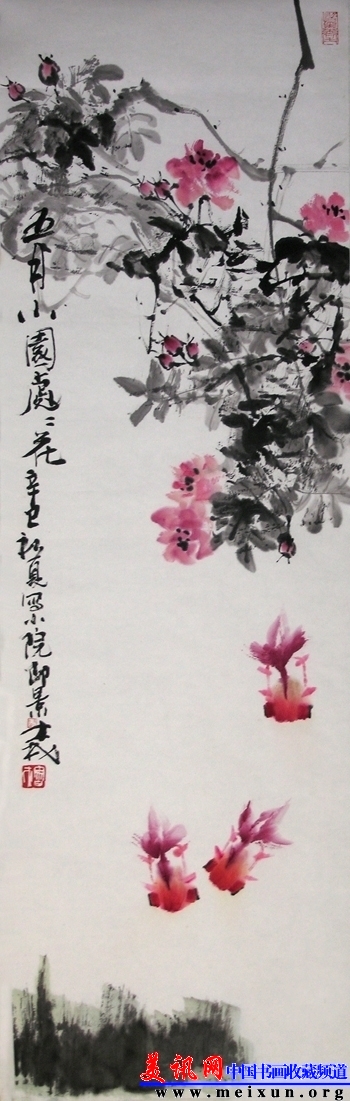 五月小園處〻花 辛丑初夏 写小院即景
美讯网 中国书画收藏频道
www.meixun.org